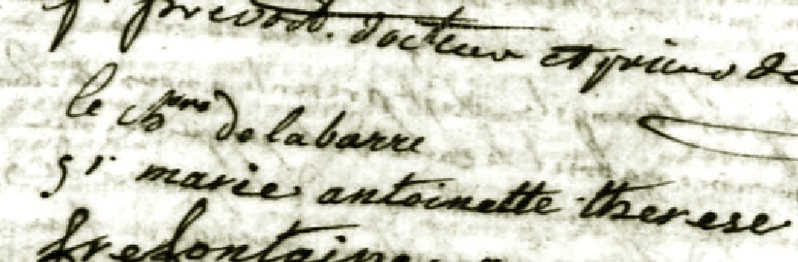 f. prevost. docteur et prieur de
le ch.er de labarre
sr. marie antoinette therese
fre fontaine